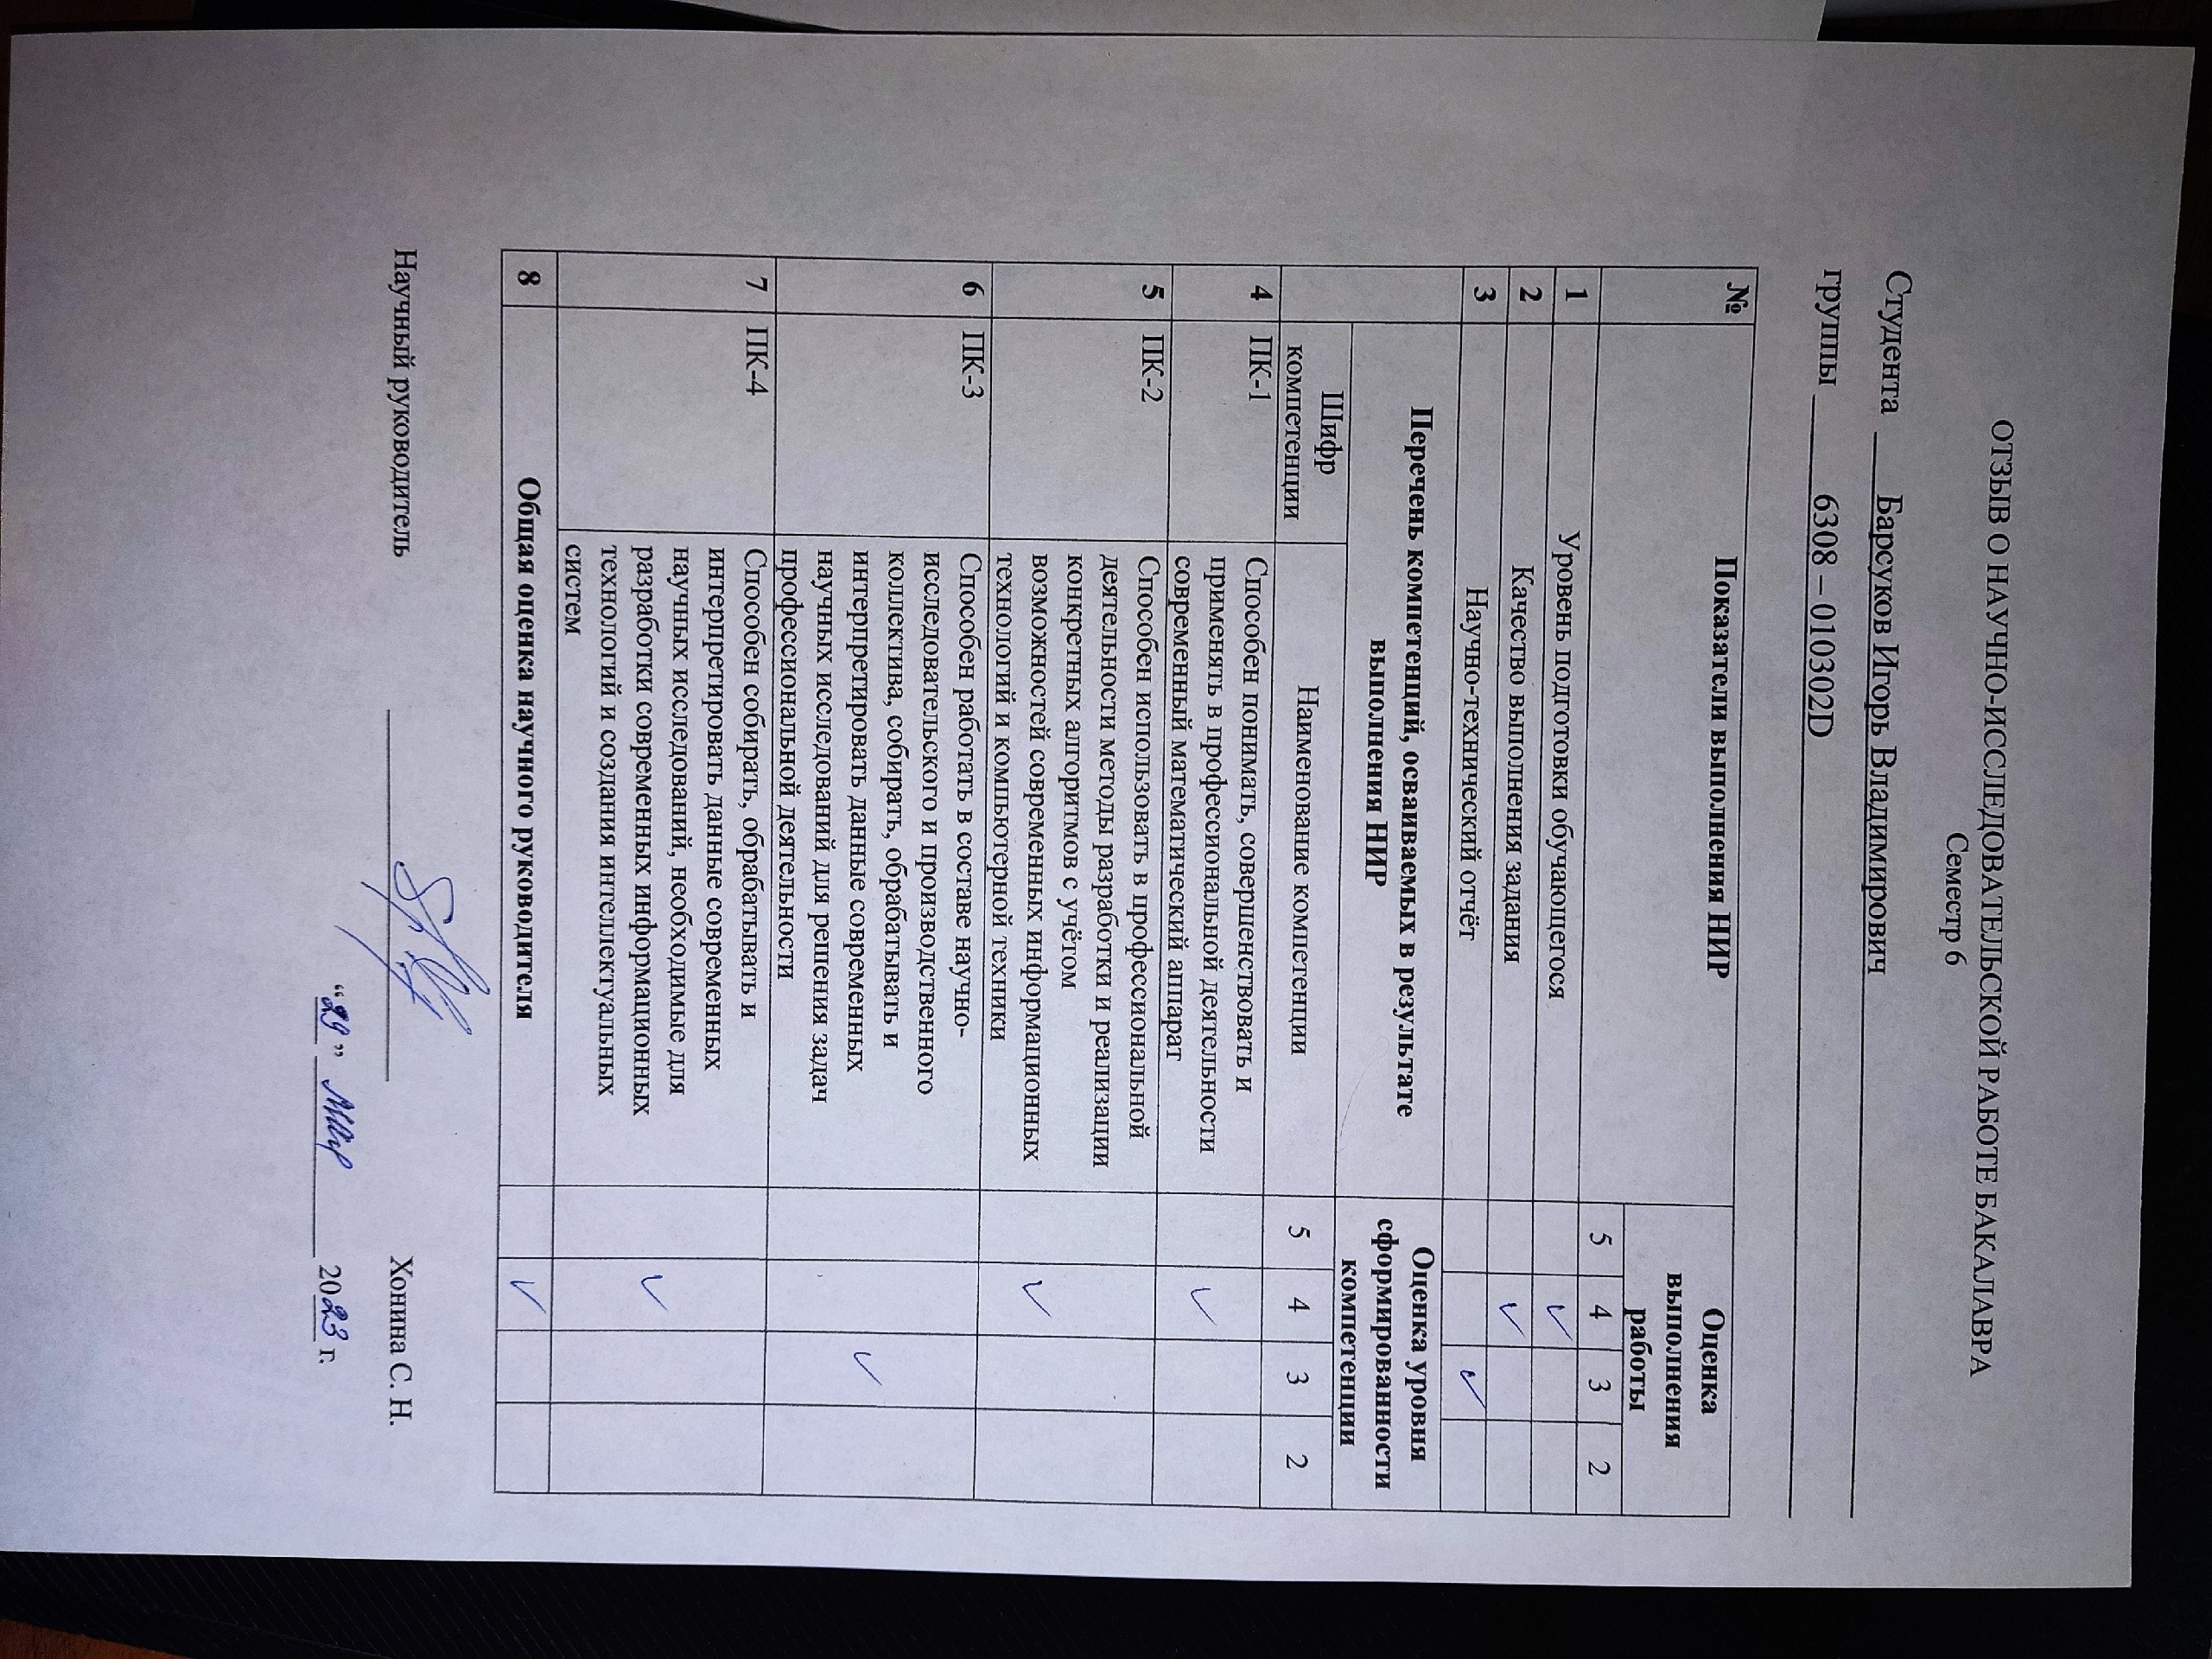 ОТЗЫВ О НАУЧНО-ИССЛЕДОВАТЕЛЬСКОЙ РАБОТЕ БАКАЛАВРА
Семестр 6
Студента Барсуков Игорь Владимирович
группы 6308 – 010302D
№ Показатели выполнения НИР Оценка
выполнения
работы
5 4 3 2
1 Уровень подготовки обучающегося ✓
2 Качество выполнения задания ✓
3 Научно-технический отчёт ✓
Перечень компетенций, осваиваемых в результате
выполнения НИР
Оценка уровня
сформированности
компетенции
Шифр
компетенции
Наименование компетенции 5 4 3 2
4 ПК-1 Способен понимать, совершенствовать и
применять в профессиональной деятельности
современный математический аппарат ✓
5 ПК-2 Способен использовать в профессиональной
деятельности методы разработки и реализации
конкретных алгоритмов с учётом
возможностей современных информационных
технологий и компьютерной техники ✓
6 ПК-3 Способен работать в составе научно-
исследовательского и производственного
коллектива, собирать, обрабатывать и
интерпретировать данные современных
научных исследований для решения задач
профессиональной деятельности ✓
7 ПК-4 Способен собирать, обрабатывать и
интерпретировать данные современных
научных исследований, необходимые для
разработки современных информационных
технологий и создания интеллектуальных
систем ✓
8 Общая оценка научного руководителя ✓
Научный руководитель Хонина С. Н.
“29” мая 2023 г.